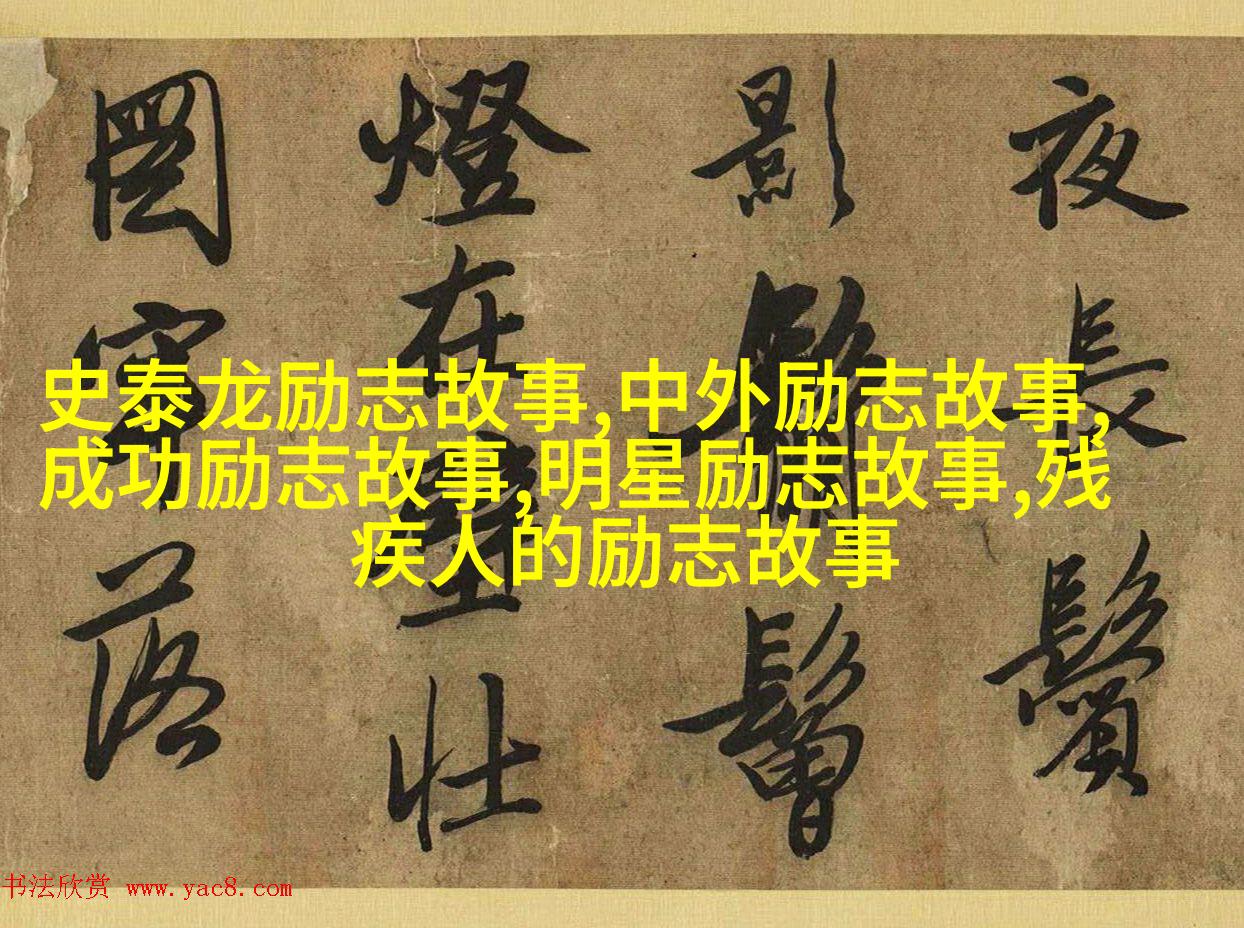 夜長鬢
影鬅鬙
燈在壁壯
圖牢落
史泰龙励志故事,中外励志故事,
成功励志故事,明星励志故事,残
疾人的励志故事
书法欣赏 www.yac8.com